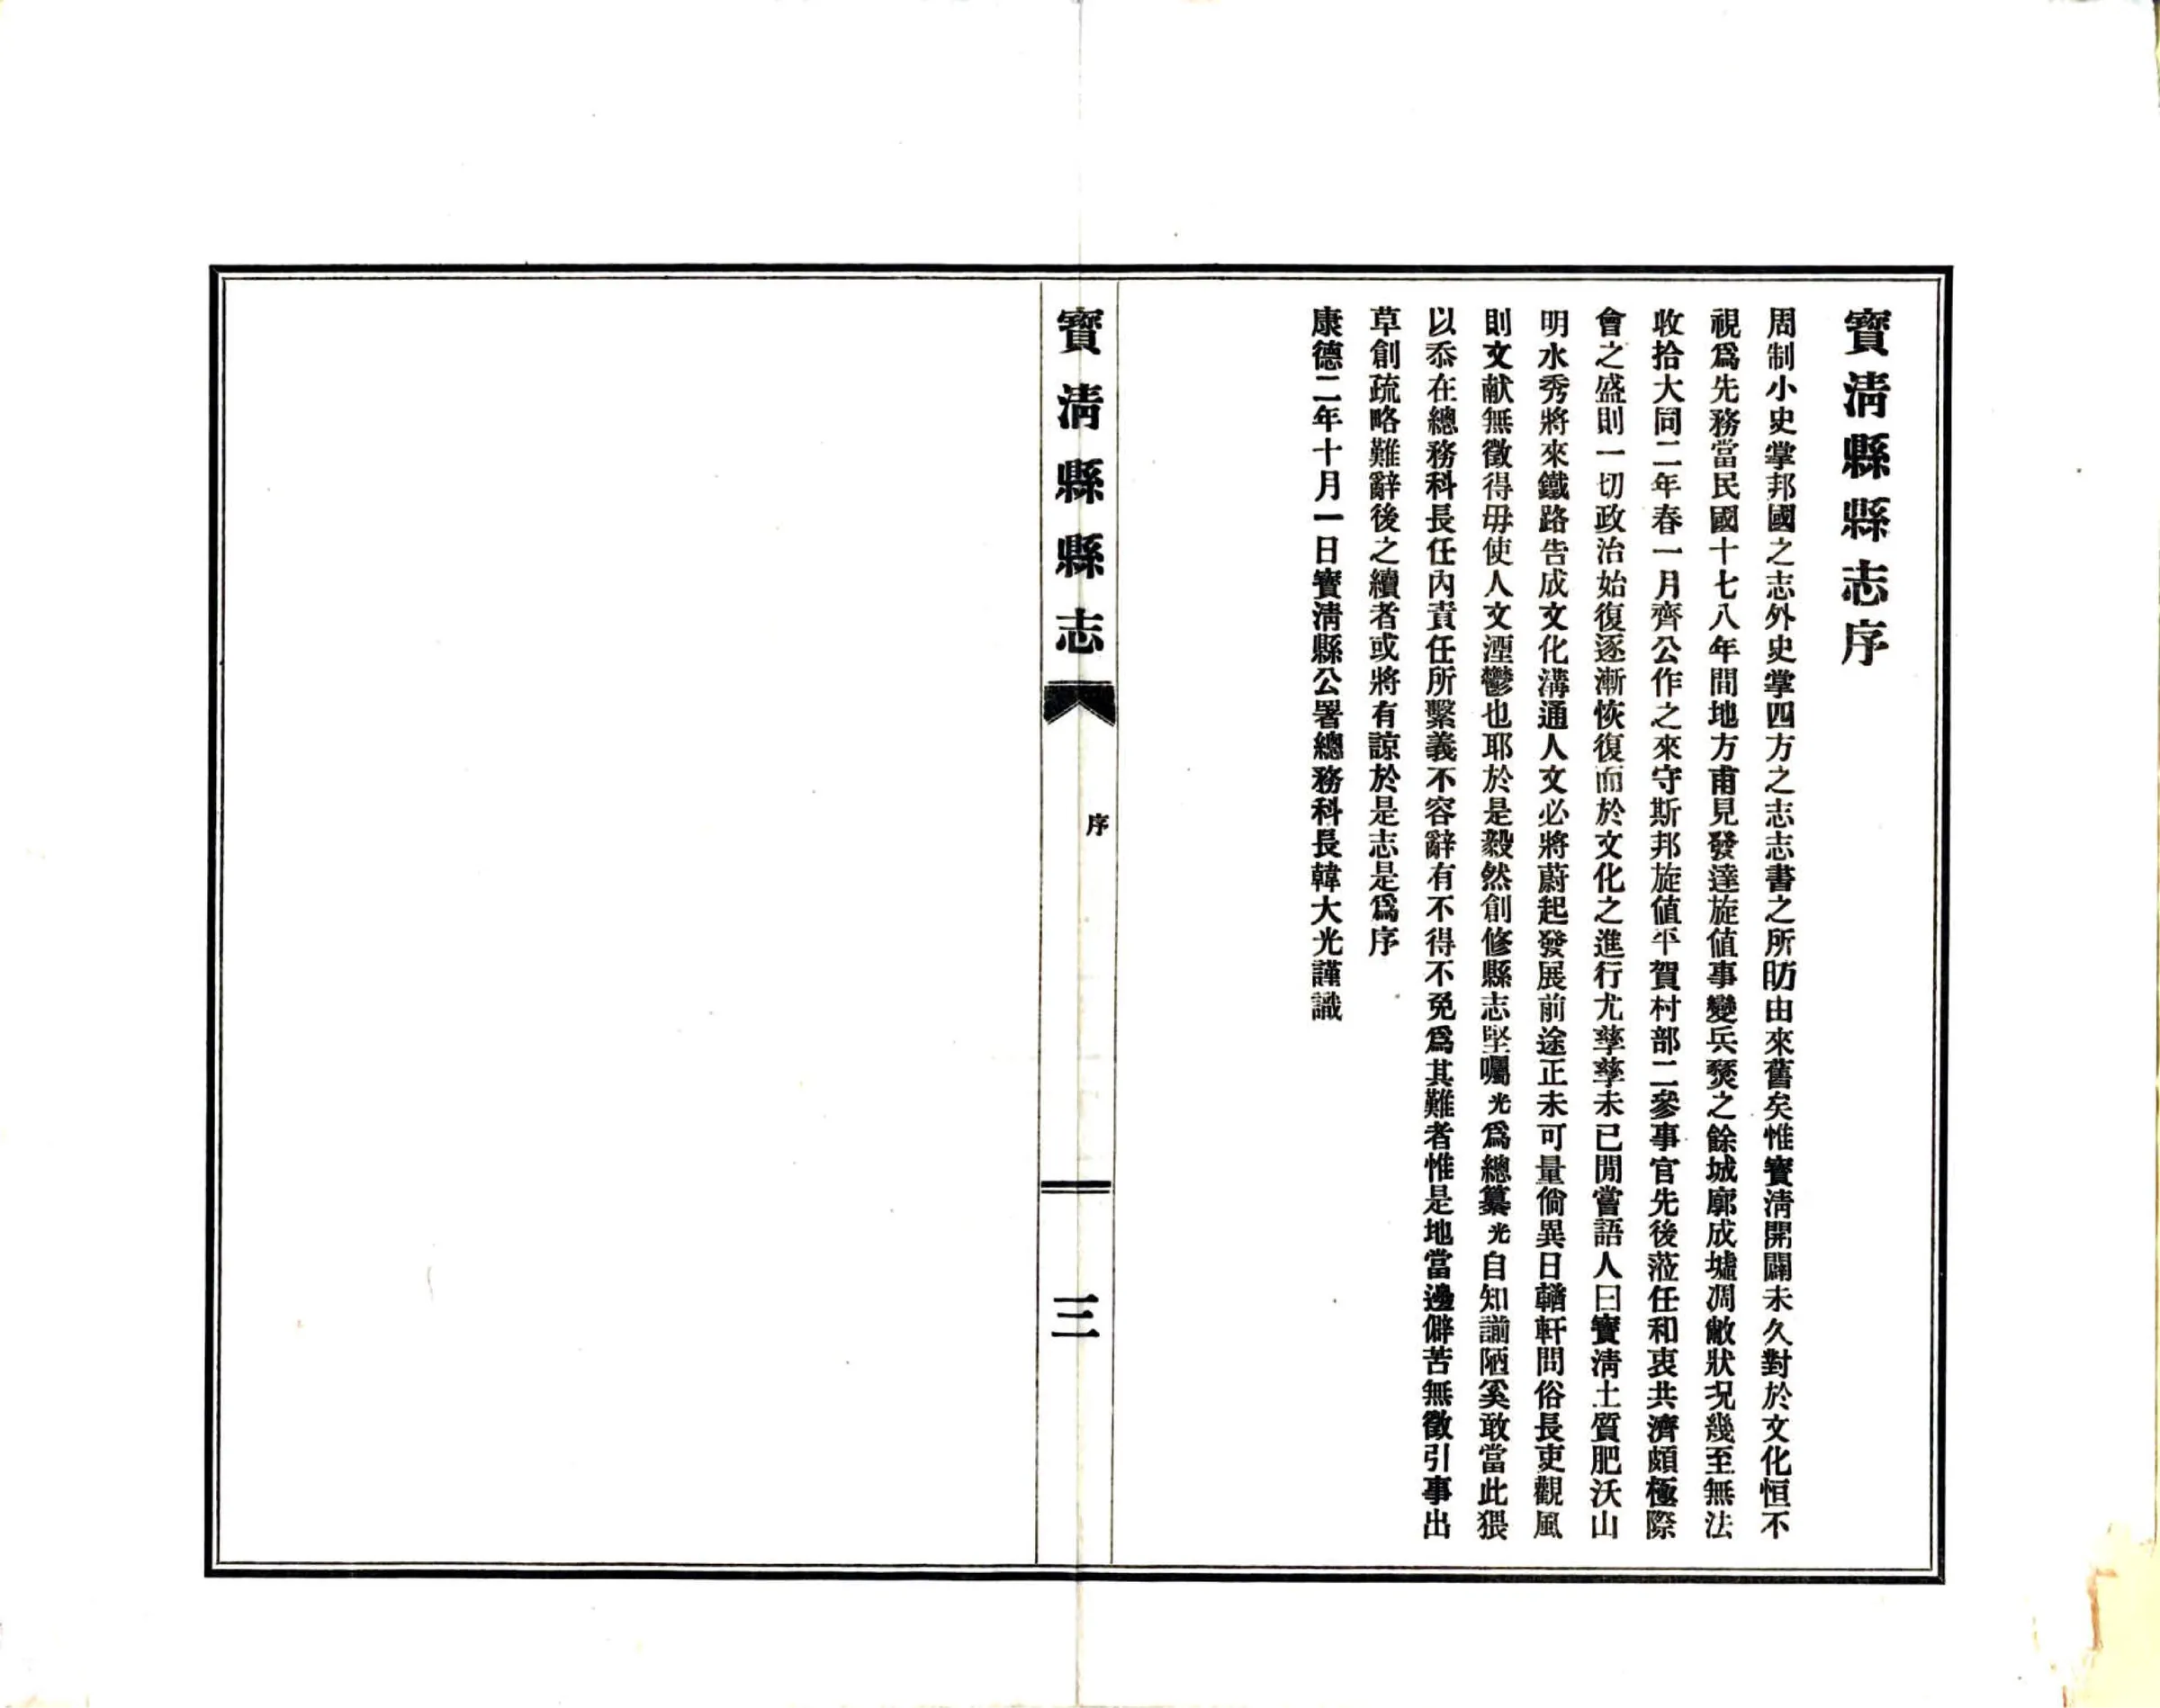 寶淸縣縣志序
周制小史掌邦國之志外史掌四方之志志書之所昉由來舊矣惟寶淸開闢未久對於文化恒不
視爲先務當民國十七八年間地方甫見發達旋値事變兵燹之餘城廓成墟凋敝狀况幾至無法
收拾大同二年春一月齊公作之來守斯邦旋値平賀村部二參事官先後蒞任和衷共濟頗極際
會之盛則一切政治始復逐漸恢復而於文化之進行尤孳孳未已閒嘗語人曰寶淸土質肥沃山
明水秀將來鐵路告成文化溝通人文必將蔚起發展前途正未可量倘異日輶軒問俗長吏觀風
則文献無徵得毋使人文湮鬱也耶於是毅然創修縣志堅囑光爲總纂光自知謭陋奚敢當此猥
以忝在總務科長任內責任所繫義不容辭有不得不免爲其難者惟是地當邊僻苦無徵引事出
草創疏略難辭後之續者或將有諒於是志是爲序
康德二年十月一日寶淸縣公署總務科長韓大光謹識
寶淸縣縣志
序
三